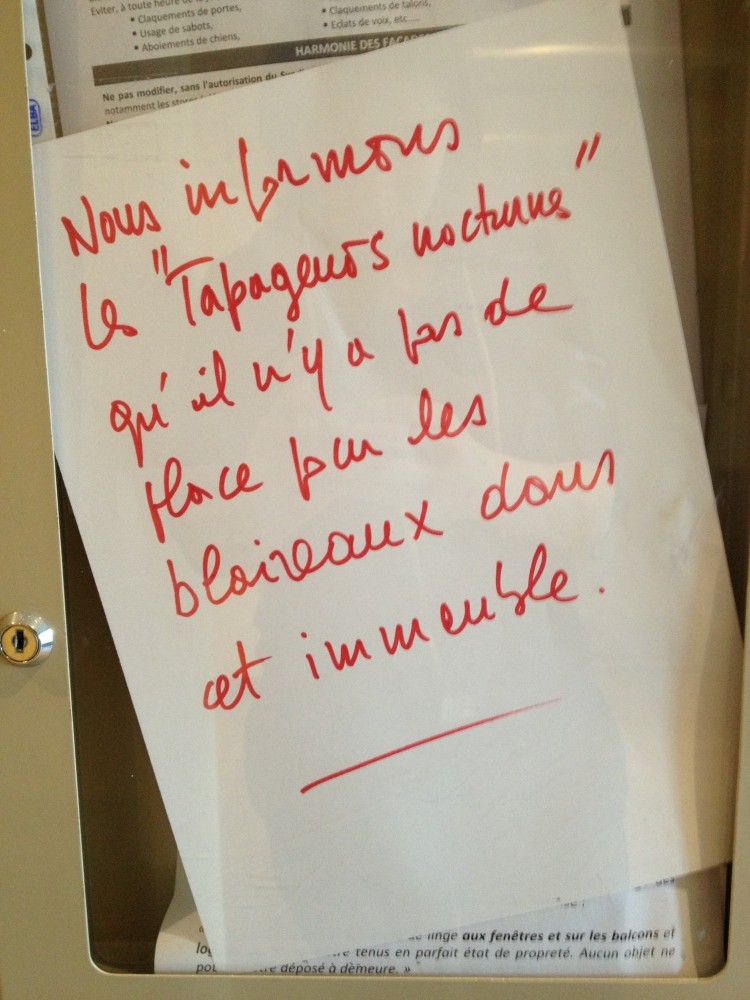 Eviter, à toute heure
• Claquements de portes,
• Usage de sabots,
• Aboiements de chiens,
• Claquements de talons,
• Eclats de voix, etc.....
HARMONIE DES FAÇAD
Ne pas modifier, sans l'autorisation du
notamment les
ELBA
Nous informons
les "Tapageurs nocturnes"
qu'il n'y a pas de
place pour les
blaireaux dans
cet immeuble.
linge aux fenêtres et sur les balcons et
tenus en parfait état de propreté. Aucun objet ne
déposé à dèmeure. »